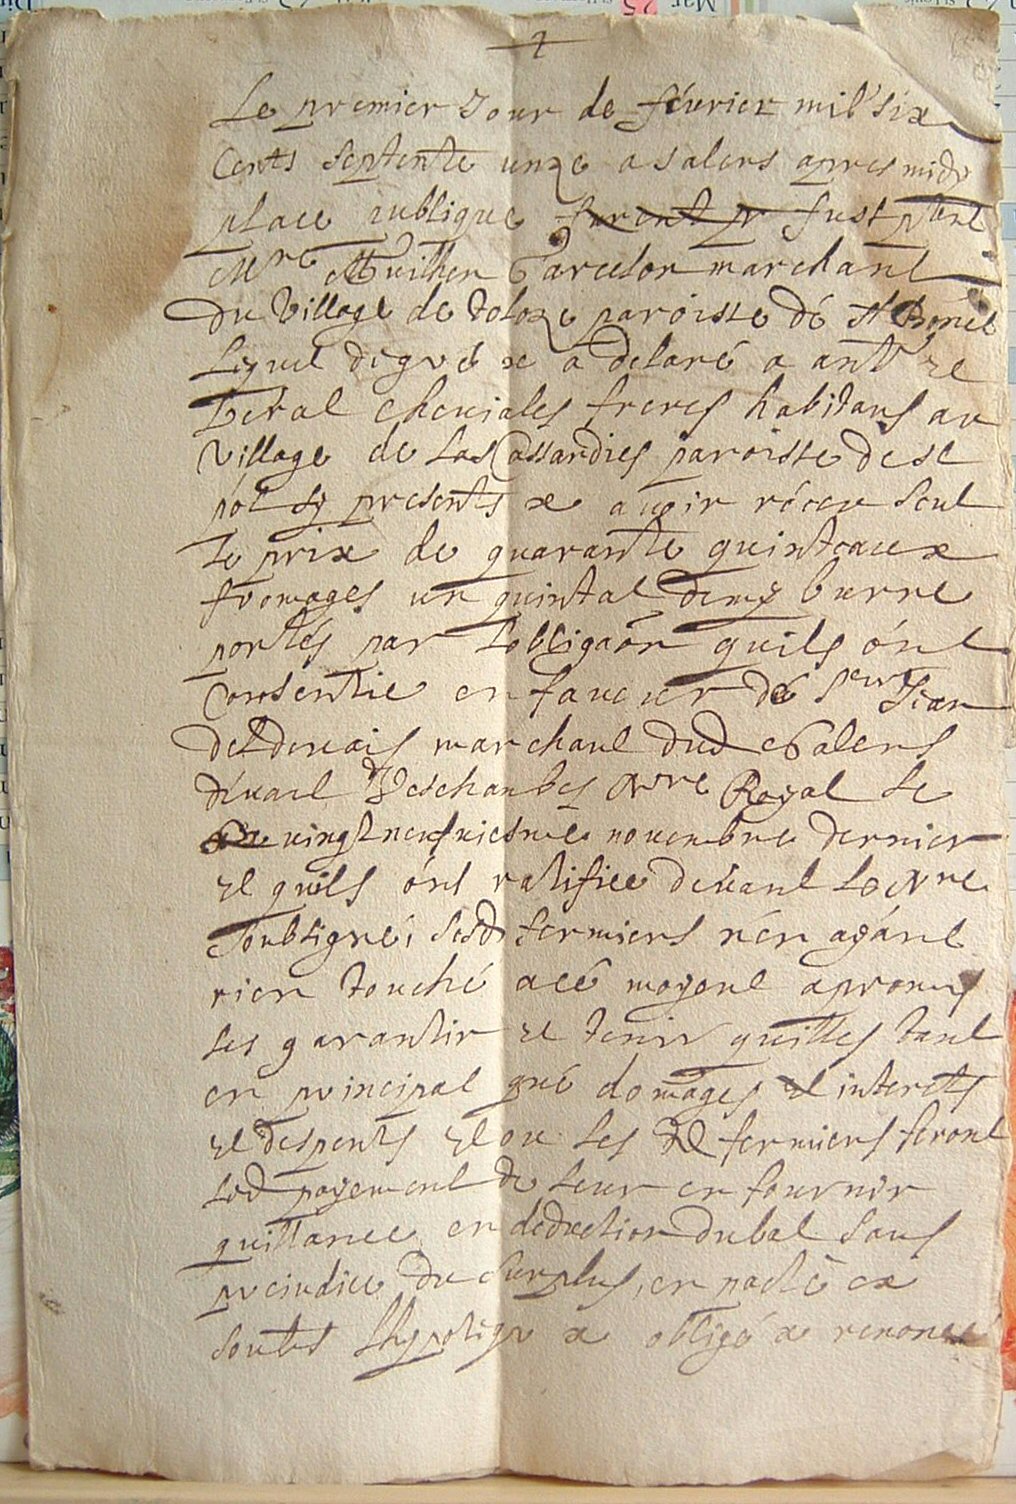 Le premier Jour de février mil six
Cents septente unze a salers apres midy
place publique furent p fust pnt
Mre Guilhen parcelon marchant
du village de paroisse dé St Bonet
Lequel de gré &c a declaré a ant
Leral cheviales freres habitans au
village de Las Cassardies paroisse de st
pol sy presents &c avoir réceu seul
Le prix de quarante quinteaux
fromages un quintal demy burre
portés par Lobligaõn quils ónt
Consentie en faveur dé Sieur Jean
deldevais marchant dud salers
dévant Deschambes Nre Royal Le
vingt neufviesme novembre dernier
et quils ónt ratifiee dévant Le Nre
soubsigné, Lesd fermiers nén ayánt
rien touché acé moyent a promis
Les garantir et tenir quittes tant
en principal qué domages et interets
et despents et ou Les d fermiers feront
Led payement de Leur en fournir
quittance en deduction dubal sans
preiudice du surplus, en pacté ex
soubs Lhypoteqe &c obligé &c renoncé